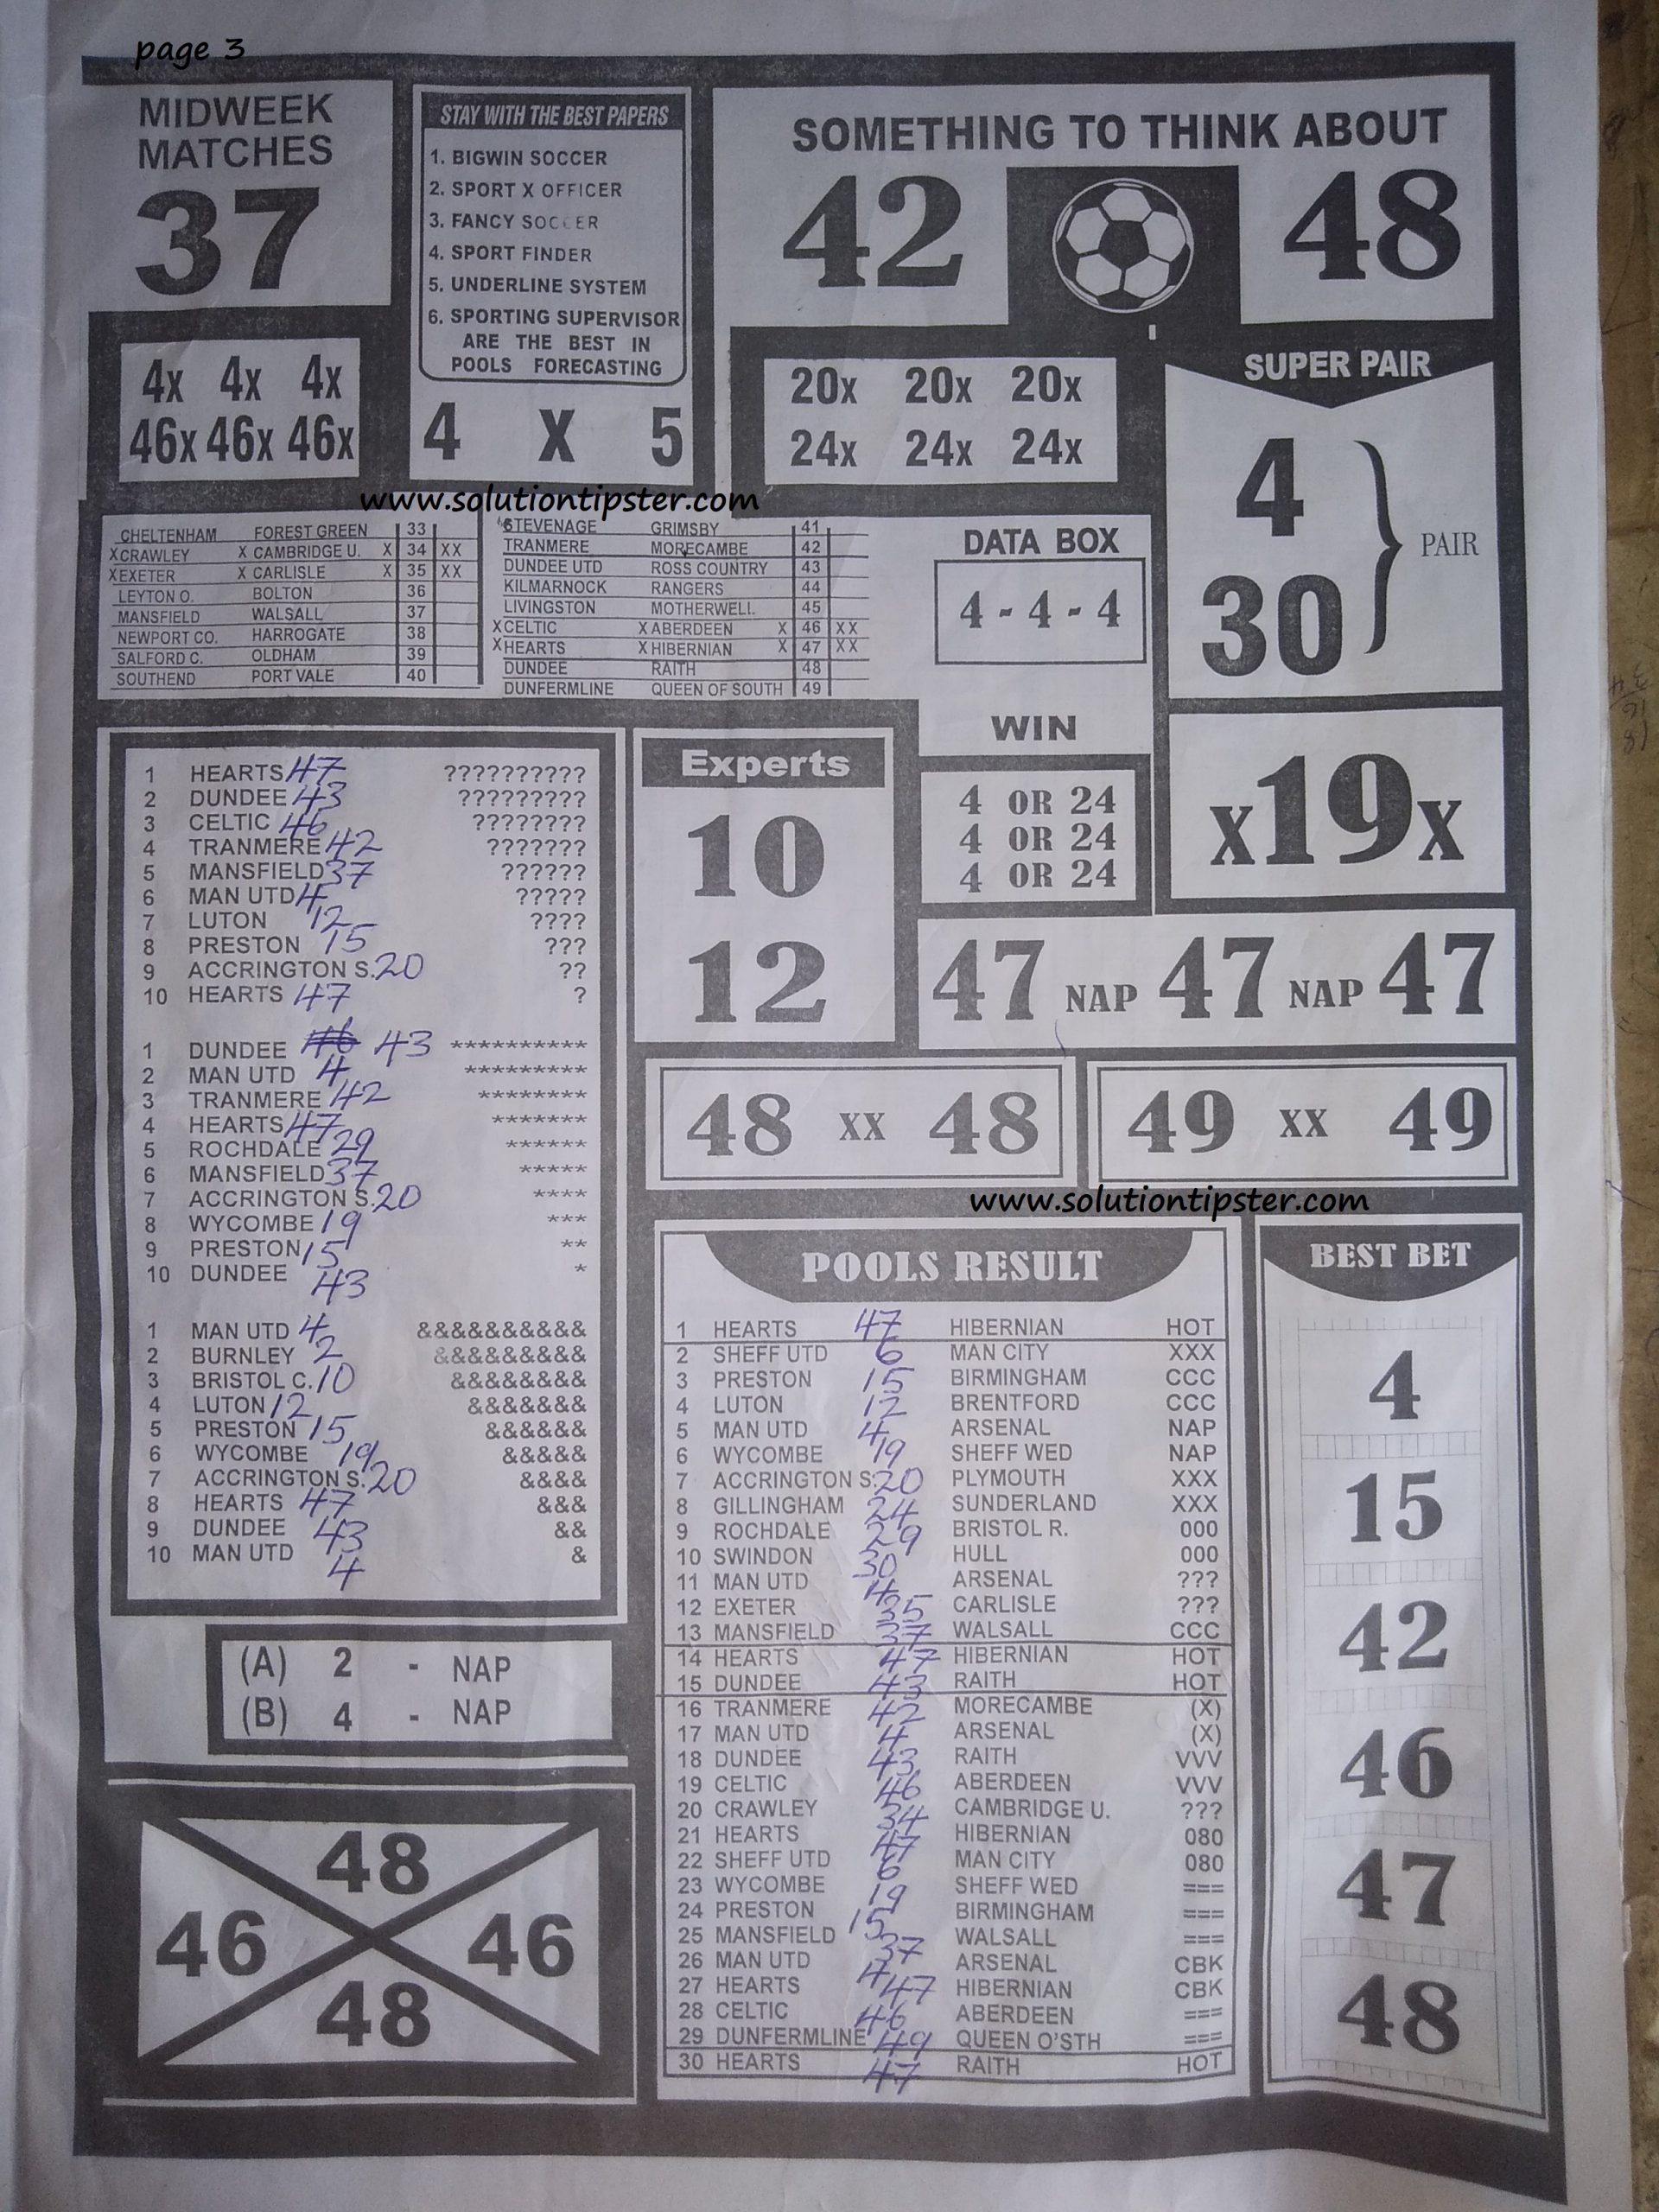 page 3
MIDWEEK
MATCHES
37
STAY WITH THE BEST PAPERS
1. BIGWIN SOCCER
2. SPORT X OFFICER
3. FANCY SOCCER
4. SPORT FINDER
5. UNDERLINE SYSTEM
6. SPORTING SUPERVISOR
ARE THE BEST IN
POOLS FORECASTING
4 X 5
SOMETHING TO THINK ABOUT
42 48
4x 4x 4x
46x 46x 46x
20x 20x 20x
24x 24x 24x
SUPER PAIR
4
30
PAIR
www.solutiontipster.com
CHELTENHAM FOREST GREEN 33
X CRAWLEY X CAMBRIDGE U. X 34 XX
X EXETER X CARLISLE X 35 XX
LEYTON O. BOLTON 36
MANSFIELD WALSALL 37
NEWPORT CO. HARROGATE 38
SALFORD C. OLDHAM 39
SOUTHEND PORT VALE 40
STEVENAGE GRIMSBY 41
TRANMERE MORECAMBE 42
DUNDEE UTD ROSS COUNTRY 43
KILMARNOCK RANGERS 44
LIVINGSTON MOTHERWELL 45
X CELTIC X ABERDEEN X 46 XX
X HEARTS X HIBERNIAN X 47 XX
DUNDEE RAITH 48
DUNFERMLINE QUEEN OF SOUTH 49
DATA BOX
4 - 4 - 4
WIN
4 OR 24
4 OR 24
4 OR 24
x19x
1 HEARTS 47 ??????????
2 DUNDEE 43 ?????????
3 CELTIC 46 ????????
4 TRANMERE 42 ???????
5 MANSFIELD 37 ??????
6 MAN UTD 4 ?????
7 LUTON 12 ????
8 PRESTON 15 ???
9 ACCRINGTON S. 20 ??
10 HEARTS 47 ?
1 DUNDEE 43 **********
2 MAN UTD 4 *********
3 TRANMERE 42 ********
4 HEARTS 47 *******
5 ROCHDALE 29 ******
6 MANSFIELD 37 *****
7 ACCRINGTON S. 20 ****
8 WYCOMBE 19 ***
9 PRESTON 15 **
10 DUNDEE 43 *
1 MAN UTD 4 &&&&&&&&&&
2 BURNLEY 2 &&&&&&&&&
3 BRISTOL C. 10 &&&&&&&&
4 LUTON 12 &&&&&&&
5 PRESTON 15 &&&&&&
6 WYCOMBE 19 &&&&&
7 ACCRINGTON S. 20 &&&&
8 HEARTS 47 &&&
9 DUNDEE 43 &&
10 MAN UTD 4 &
Experts
10
12
47 NAP 47 NAP 47
48 xx 48
49 xx 49
www.solutiontipster.com
(A) 2 - NAP
(B) 4 - NAP
48
46 46
48
POOLS RESULT
1 HEARTS 47 HIBERNIAN HOT
2 SHEFF UTD 6 MAN CITY XXX
3 PRESTON 15 BIRMINGHAM CCC
4 LUTON 12 BRENTFORD CCC
5 MAN UTD 4 ARSENAL NAP
6 WYCOMBE 19 SHEFF WED NAP
7 ACCRINGTON S. 20 PLYMOUTH XXX
8 GILLINGHAM 24 SUNDERLAND XXX
9 ROCHDALE 29 BRISTOL R. 000
10 SWINDON 30 HULL 000
11 MAN UTD 4 ARSENAL ???
12 EXETER 35 CARLISLE ???
13 MANSFIELD 37 WALSALL CCC
14 HEARTS 47 HIBERNIAN HOT
15 DUNDEE 43 RAITH HOT
16 TRANMERE 42 MORECAMBE (X)
17 MAN UTD 4 ARSENAL (X)
18 DUNDEE 43 RAITH VVV
19 CELTIC 46 ABERDEEN VVV
20 CRAWLEY 34 CAMBRIDGE U. ???
21 HEARTS 47 HIBERNIAN 080
22 SHEFF UTD 6 MAN CITY 080
23 WYCOMBE 19 SHEFF WED ===
24 PRESTON 15 BIRMINGHAM ===
25 MANSFIELD 37 WALSALL ===
26 MAN UTD 4 ARSENAL CBK
27 HEARTS 47 HIBERNIAN CBK
28 CELTIC 46 ABERDEEN ===
29 DUNFERMLINE 49 QUEEN O'STH ===
30 HEARTS 47 RAITH HOT
BEST BET
4
15
42
46
47
48